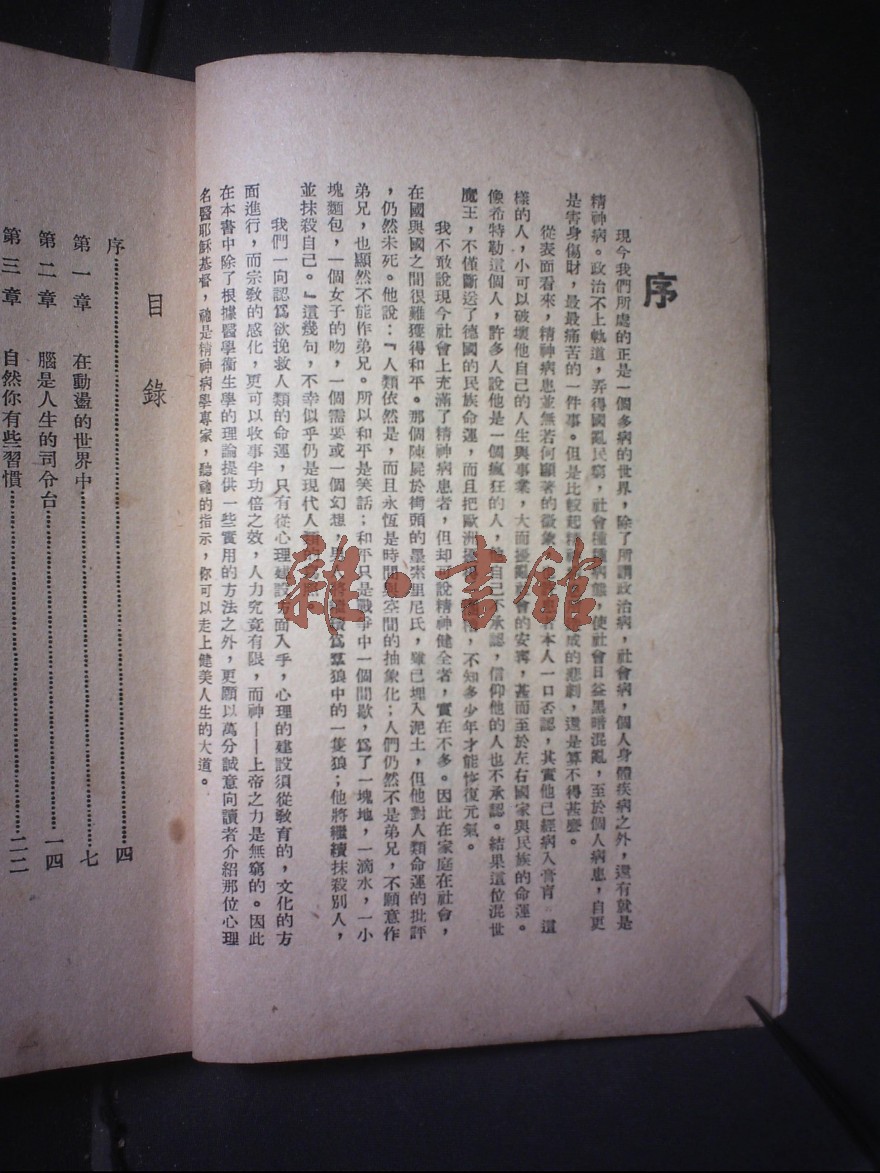 序
現今我們所處的正是一個多病的世界，除了所謂政治病，社會病，個人身體疾病之外，還有就是
精神病。政治不上軌道，弄得國亂民窮，社會種種病態，使社會日益黑暗混亂，至於個人病患，自更
是害身傷財，最最痛苦的一件事。但是比較起精神 成的悲劇，還是算不得甚麼。
從表面看來，精神病患並無若何顯著的徵象 本人一口否認，其實他已經病入膏肓 這
樣的人，小可以破壞他自己的人生與事業，大而擾亂社會的安寧，甚而至於左右國家與民族的命運。
像希特勒這個人，許多人說他是一個瘋狂的人，他自己不承認，信仰他的人也不承認。結果這位混世
魔王，不僅斷送了德國的民族命運，而且把歐洲 ，不知多少年才能恢復元氣。
我不敢說現今社會上充滿了精神病患者，但却可說精神健全者，實在不多。因此在家庭在社會，
在國與國之間很難獲得和平。那個陳屍於街頭的墨索里尼氏，雖已埋入泥土，但他對人類命運的批評
，仍然未死。他說：『人類依然是，而且永恆是時間與空間的抽象化；人們仍然不是弟兄，不願意作
弟兄，也顯然不能作弟兄。所以和平是笑話；和平只是戰爭中一個間歇，爲了一塊地，一滴水，一小
塊麵包，一個女子的吻，一個需要或一個幻想 男人將 爲羣狼中的一隻狼；他將繼續抹殺別人，
並抹殺自己。』這幾句，不幸似乎仍是現代人類的
我們一向認爲欲挽救人類的命運，只有從心理建設方面入手，心理的建設須從敎育的，文化的方
面進行，而宗敎的感化，更可以收事半功倍之效，人力究竟有限，而神——上帝之力是無窮的。因此
在本書中除了根據醫學衛生學的理論提供一些實用的方法之外，更願以萬分誠意向讀者介紹那位心理
名醫耶穌基督，祂是精神病學專家，聽祂的指示，你可以走上健美人生的大道。
目錄
序……四
第一章 在動盪的世界中……七
第二章 腦是人生的司令台……一四
第三章 自然你有些習慣……二二
雜·書館